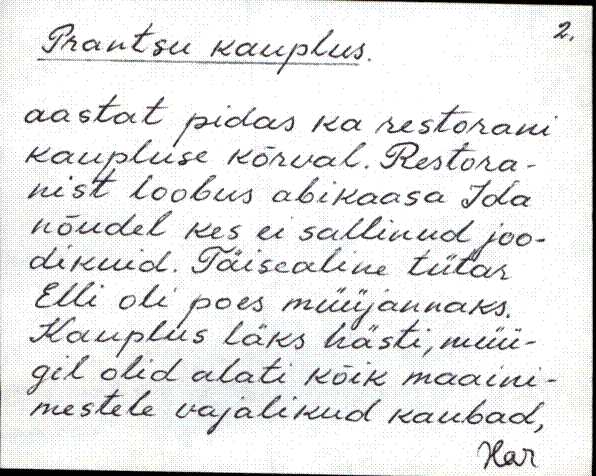 2.
Prantsu kauplus.
aastat pidas ka restorani
kaupluse kõrval. Restora-
nist loobus abikaasa Ida
nõudel kes ei sallinud joo-
dikuid. Täisealine tütar
Elli oli poes müüjannaks.
Kauplus läks hästi, müü-
gil olid alati kõik maaini-
mestele vajalikud kaubad,
Har